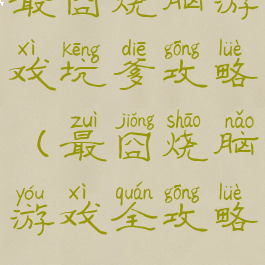 最囧烧脑游
xì kēng diē gōng lüè
戏坑爹攻略
zuì jiǒng shāo nǎo
(最囧烧脑
yóu xì quán gōng lüè
游戏全攻略